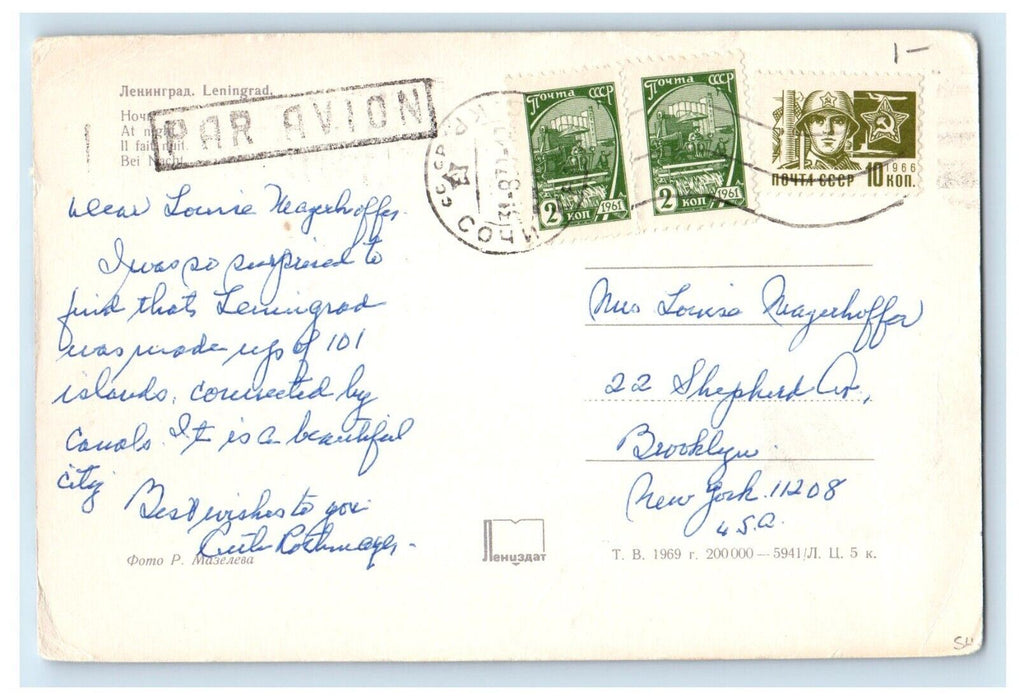 Ленинград. Leningrad.
Ночью
At night.
Il fait nuit.
Bei Nacht.
PAR AVION
СССР
СОЧИ
Почта СССР
2 коп 1961
Почта СССР
2 коп 1961
ПОЧТА СССР 10 КОП. 1966
1 —
Dear Louise Magerhoffer.
I was so surprised to
find that Leningrad
was made up of 101
islands, connected by
canals. It is a beautiful
city
Best wishes to you
Фото Р. Мазелева
Mrs Louise Magerhoffer
22 Shepherd Av,
Brooklyn
New York. 11208
U.S.A.
Лениздат
Т. В. 1969 г. 200 000 — 5941/Л. Ц. 5 к.
SH